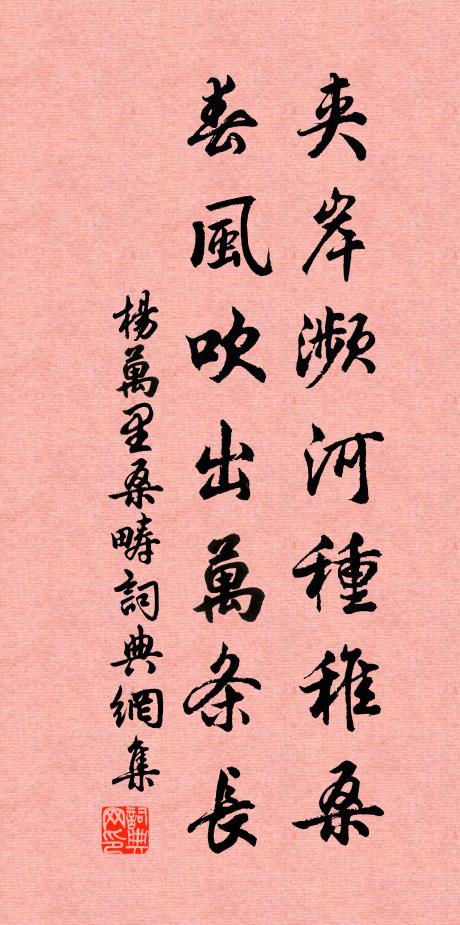 夹岸瀕河種稚桑
春風吹出萬条長
楊萬里桑疇詞典網集
詞典网印